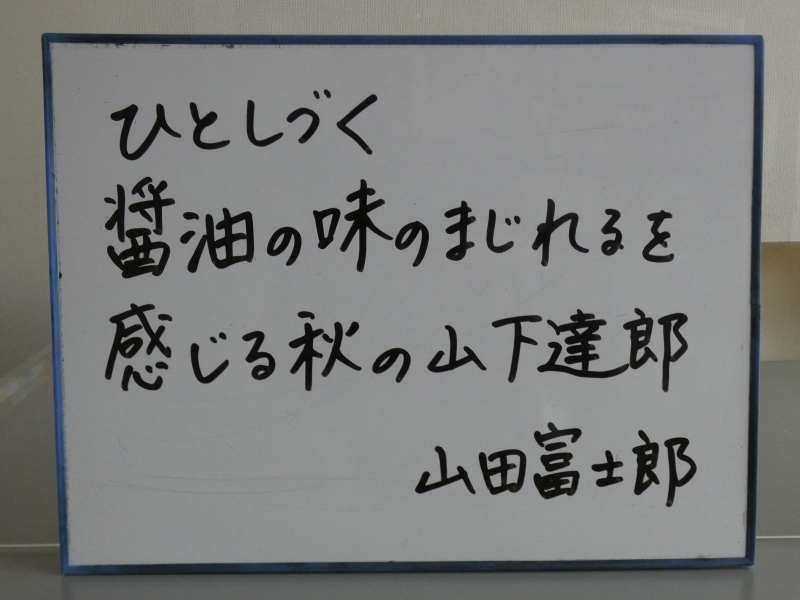 ひとしづく
醤油の味のまじれるを
感じる秋の山下達郎
山田富士郎